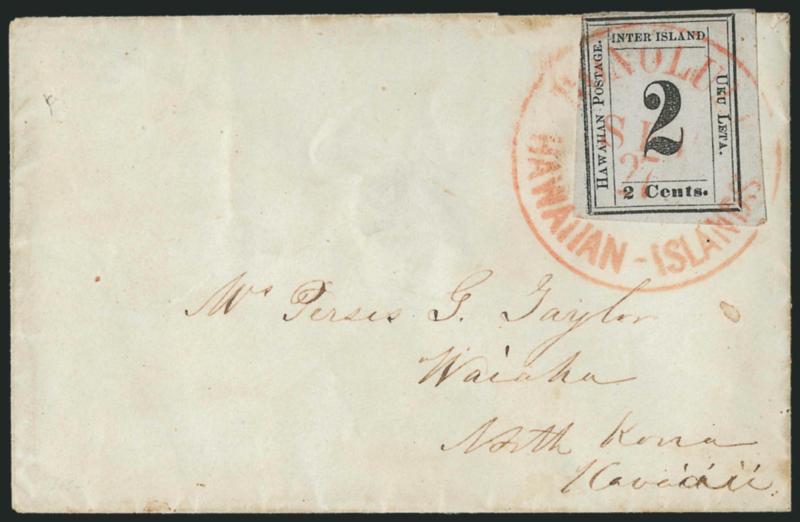 INTER ISLAND
HAWAIIAN POSTAGE.
2
UKU LETA.
2 Cents.
HONOLULU
SEP
27
HAWAIIAN - ISLANDS
Mrs Persis G. Taylor
Waiaha
North Kona
Hawaii